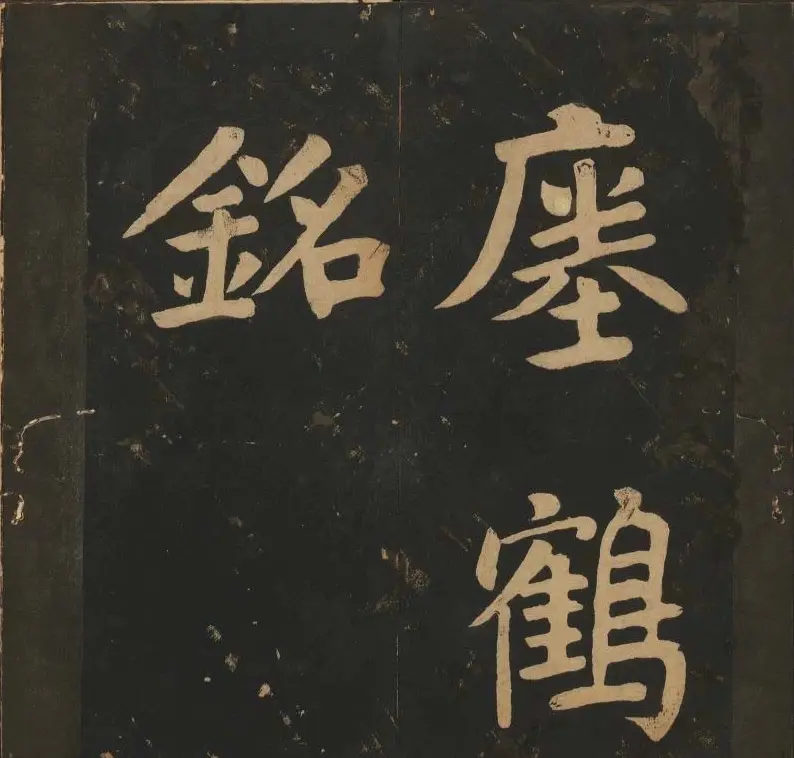 瘞鶴
銘